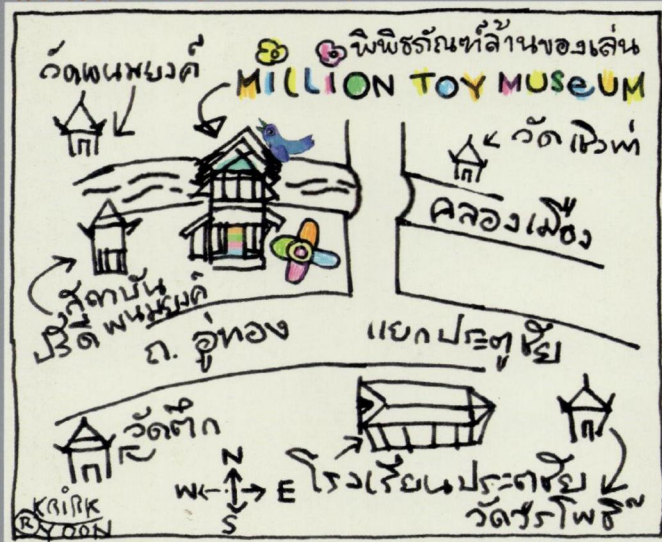 พิพิธภัณฑ์ล้านของเล่น
MILLION TOY MUSEUM
วัดพนมยงค์
วัดเชิงท่า
คลองเมือง
สถาบัน
ปรีดี พนมยงค์
ถ. อู่ทอง
แยกประตูชัย
วัดตึก
N
W
E
S
โรงเรียนประตูชัย
วัดวรโพธิ์
KRIRK
® YOON